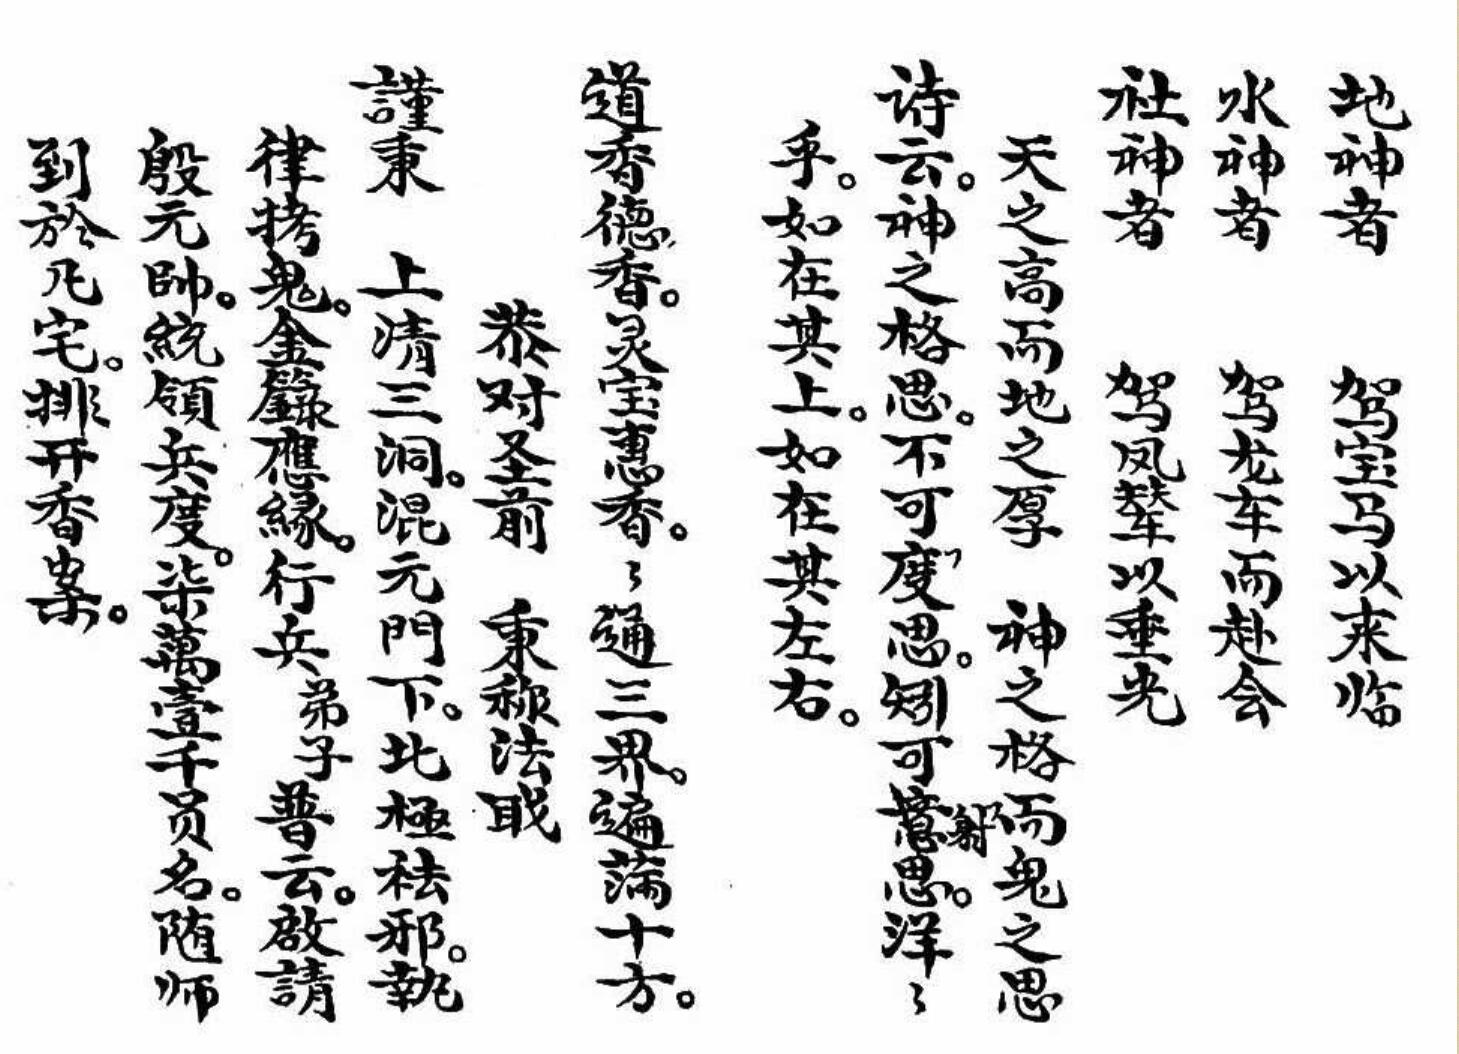 地神者 驾宝马以来临
水神者 驾龙车而赴会
社神者 驾凤辇以垂光
天之高而地之厚 神之格而鬼之思
诗云。神之格思。不可度思。矧可意射思。洋〻
乎。如在其上。如在其左右。
道香德香。灵宝惠香。〻通三界。遍满十方。
恭对圣前 秉称法职
謹秉 上清三洞。混元門下。北極祛邪。執
律拷鬼。金籙應緣。行兵弟子普云。啟請
殷元帥。統領兵度。柒萬壹千员名。随师
到於凡宅。排开香案。